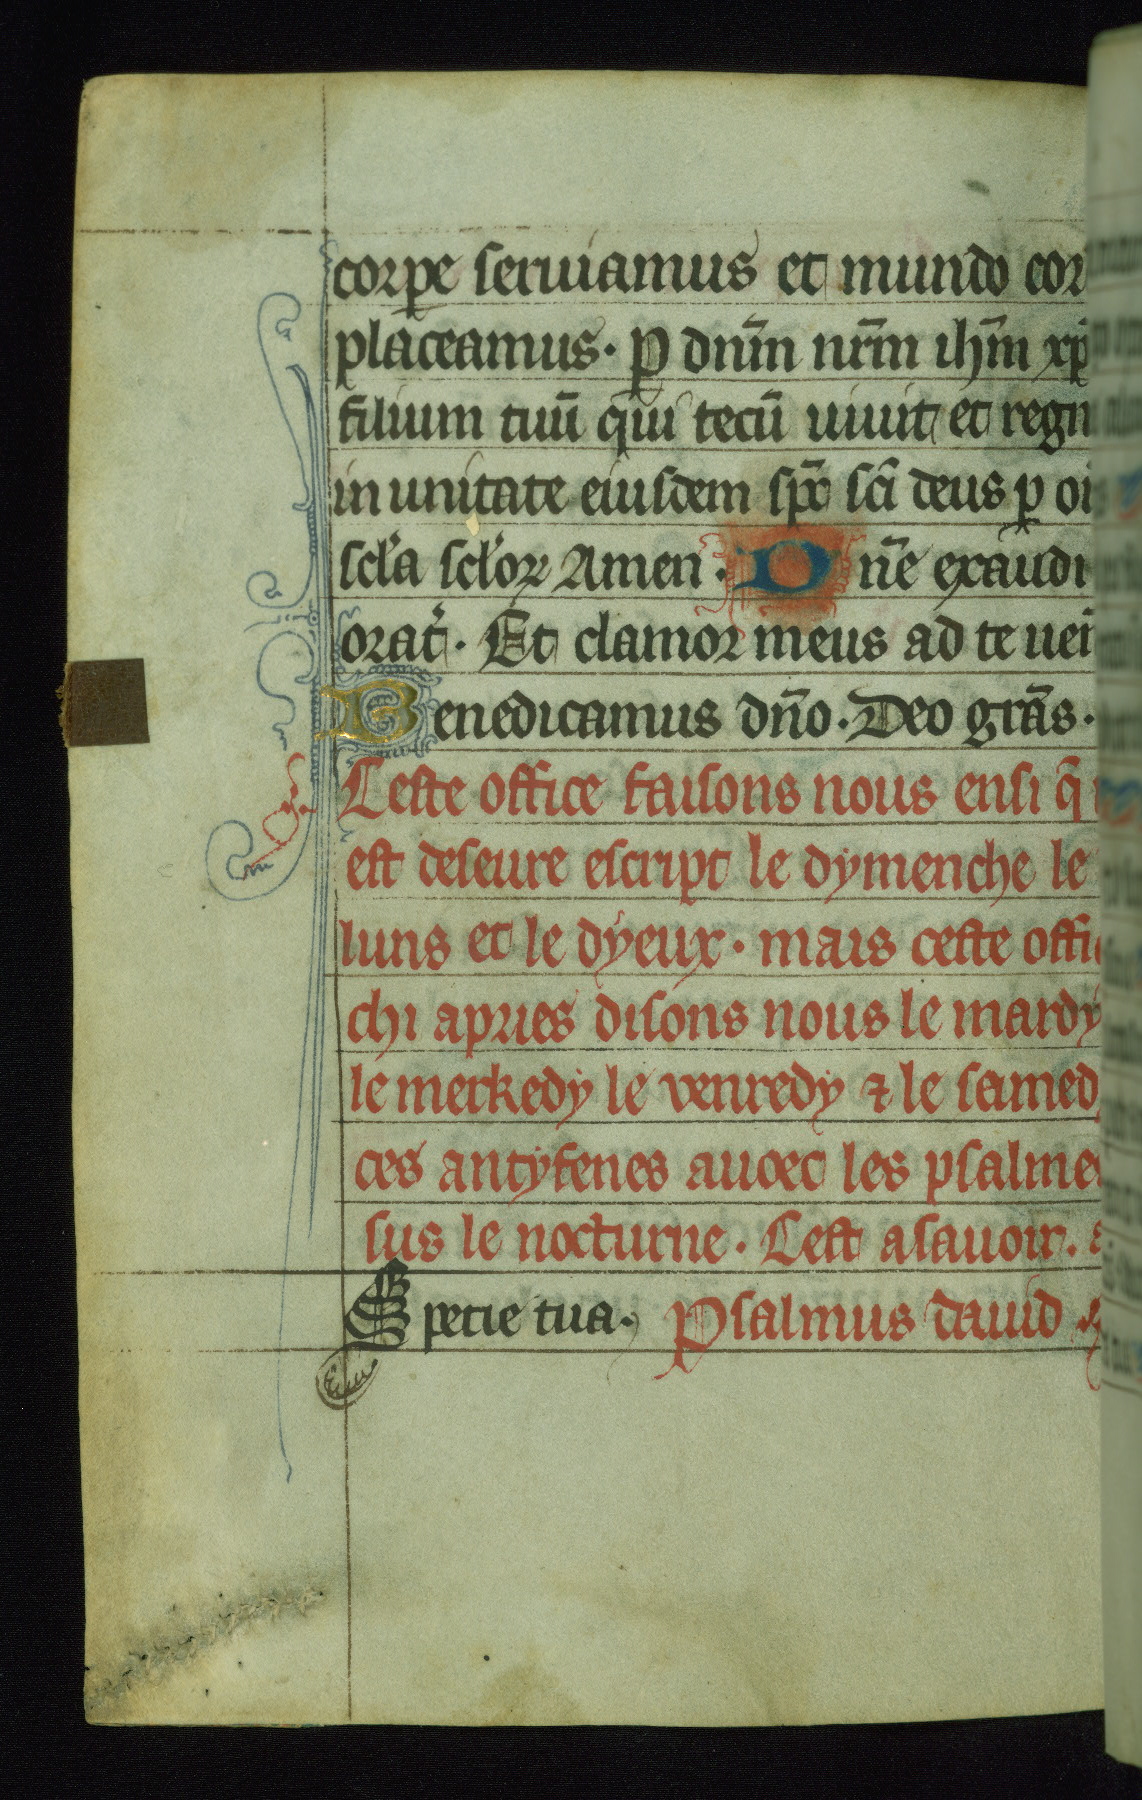 corpe seruiamus et mundo cor
placeamus. p dnm̄ nrm̄ ihm̄ xp̄
filium tuū qui tecū uiuit et regn
in unitate eiusdem spc̄ sc̄i deus p oi
scl̄a scl̄oꝝ Amen. Dn̄e exaudi
orat̄. Et clamor meus ad te uei
Benedicamus dn̄o. Deo grās.
Ceste office faisons nous ensi q̄
est deseure escript le dymenche le
luns et le dyeux. mais ceste offi
chi apries disons nous le mardy
le merkedy le venredy ⁊ le samed
ces antyfenes auoec les psalme
sus le nocturne. Cest asauoir.
Specie tua. Psalmus dauid